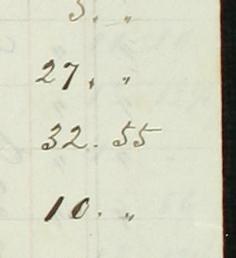 5. "
27. "
32.55
10. "